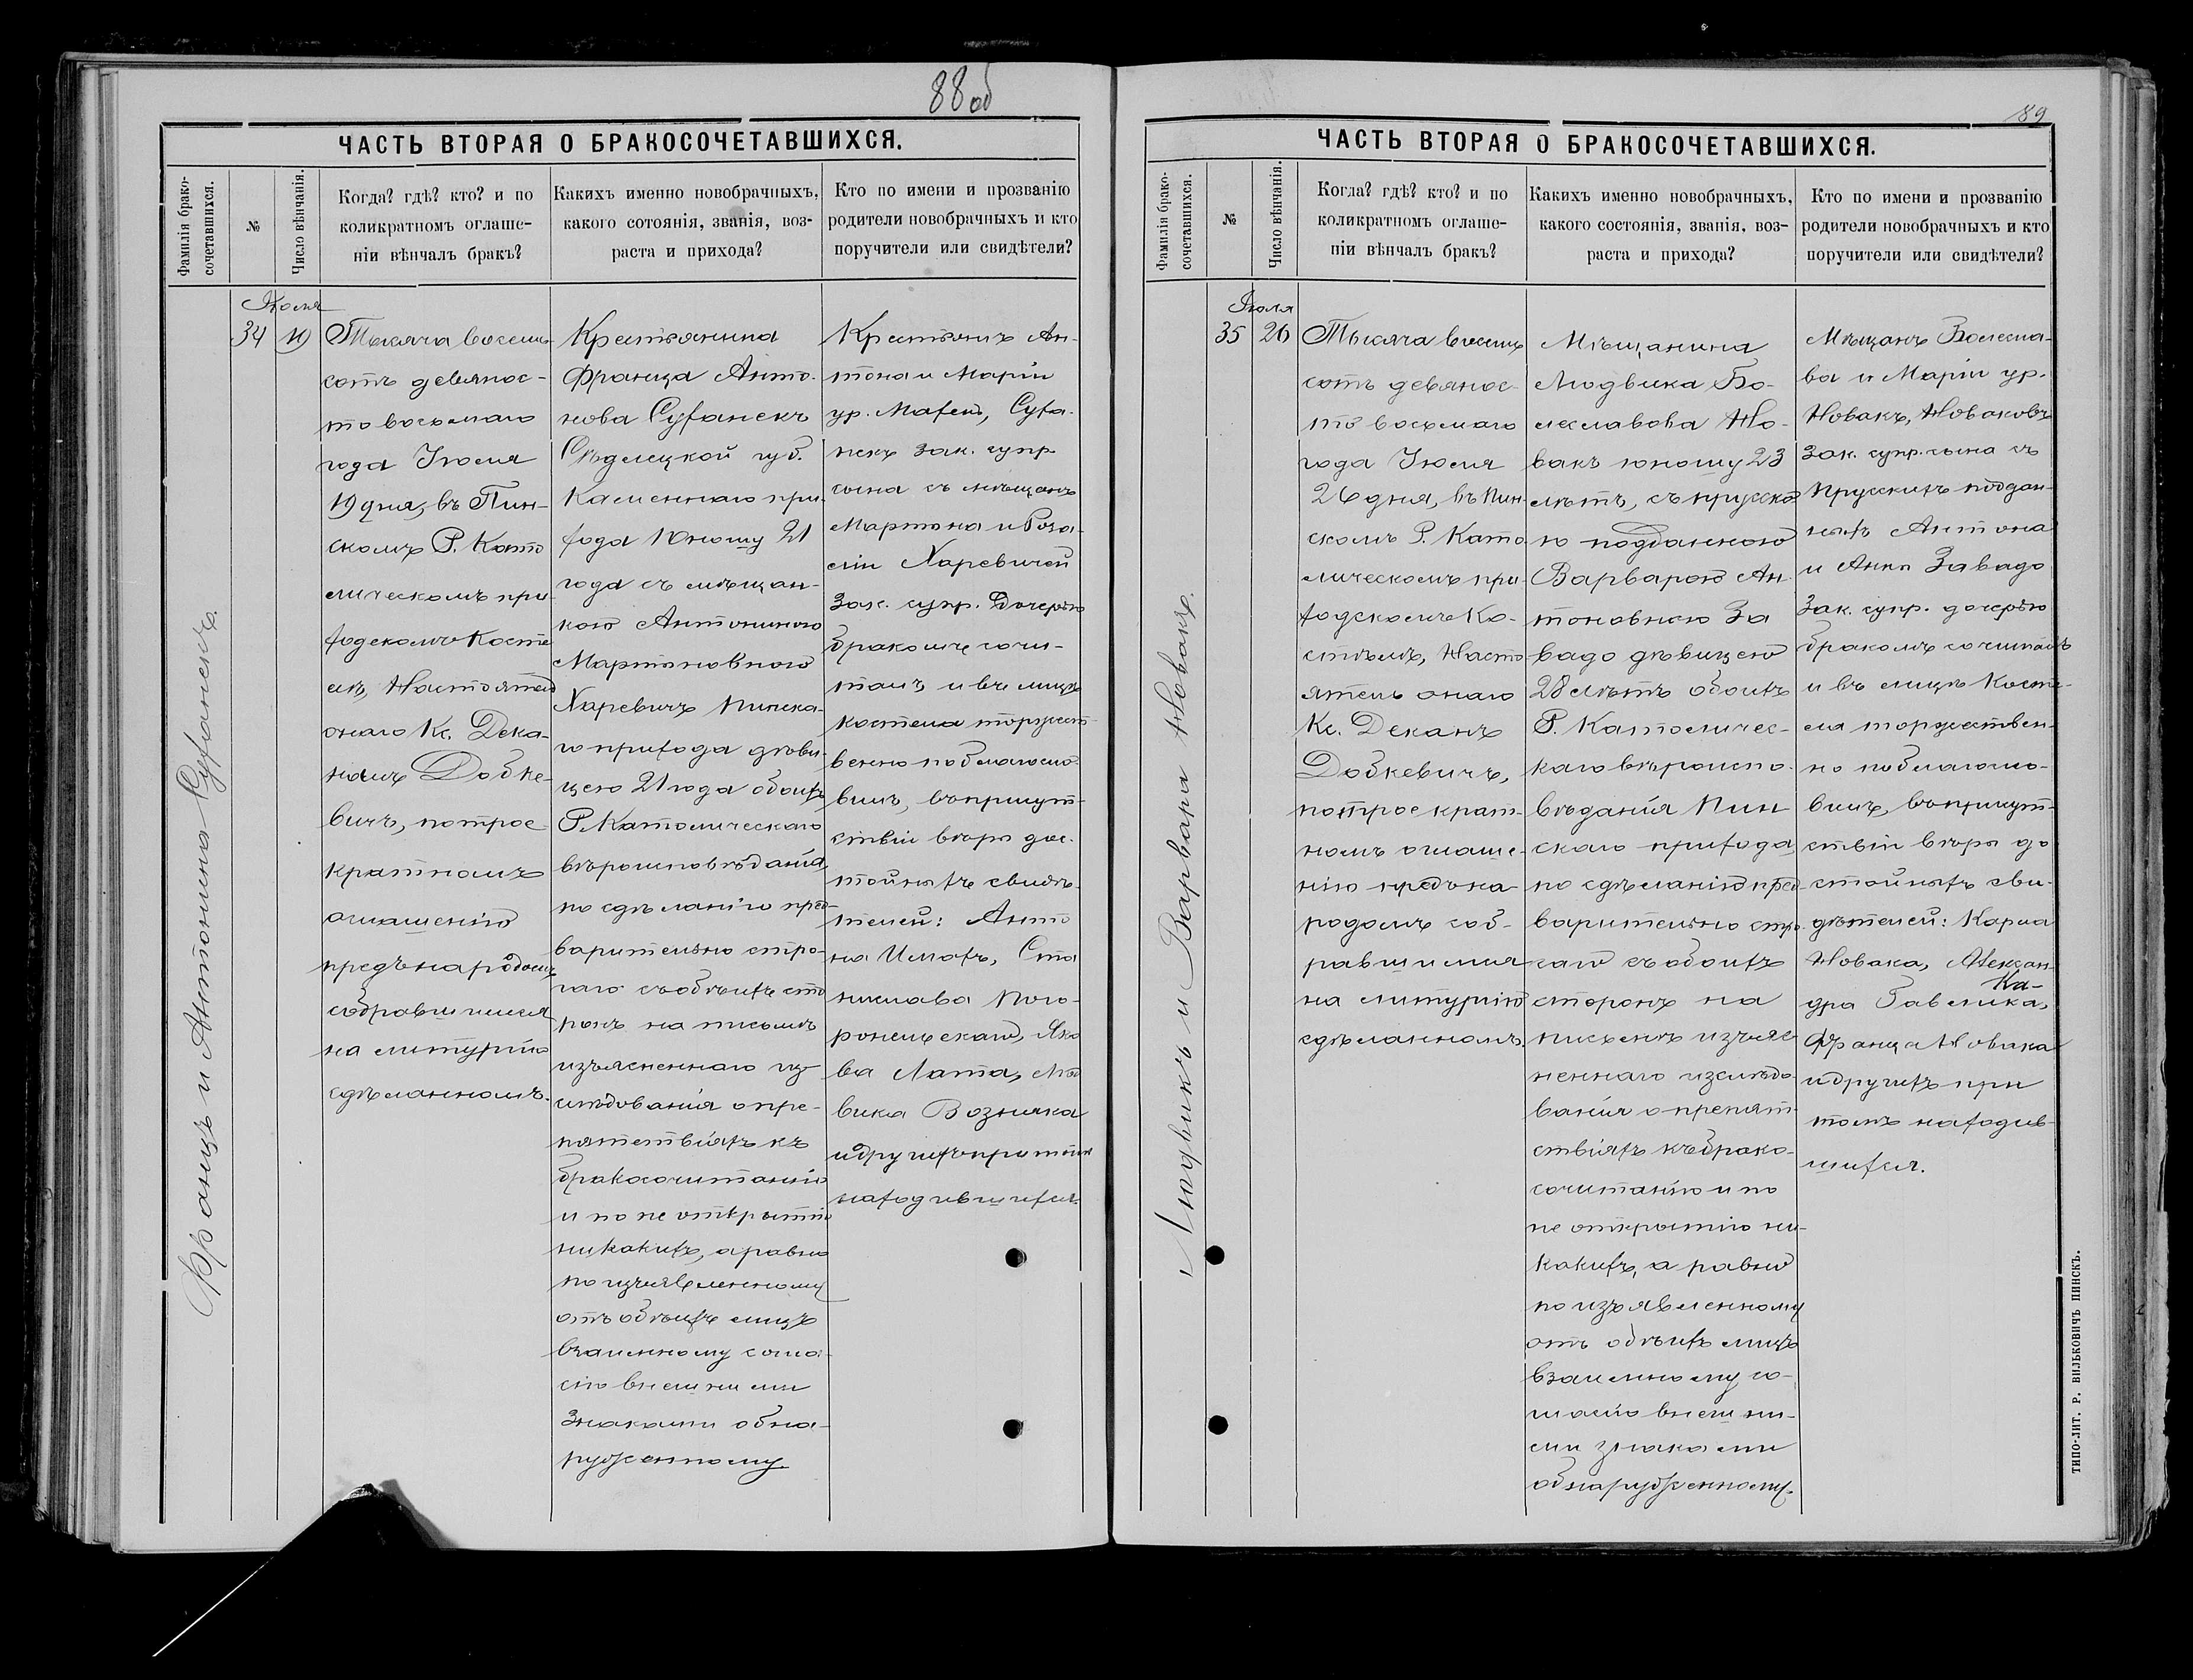 88 об
ЧАСТЬ ВТОРАЯ О БРАКОСОЧЕТАВШИХСЯ.
Фамилія брако-
сочетавшихся.
№
Число вѣнчанія.
Когда? гдѣ? кто? и по
коликратномъ оглаше-
ніи вѣнчалъ бракъ?
Какихъ именно новобрачныхъ,
какого сотоянія, званія, воз-
раста и прихода?
Кто по имени и прозванію
родители новобрачныхъ и кто
поручители или свидѣтели?
Францъ и Антонина Суханекъ.
Іюля
34
19
Тысяча восемь-
сотъ девянос-
то восьмаго
года Іюля
19 дня, въ Пин-
скомъ Р. Като
лическомъ при
ходскомъ Косте
лѣ, Настоятель
онаго Кс. Дека-
номъ Добке-
вичъ, по трое
кратномъ
оглашеніи
предъ народомъ
собравшимся
на литургію
сдѣланномъ.
Крестьянина
Франца Анто-
нова Суханекъ
Сѣдлецкой губ.
Каменнаго при-
хода юношу 21
года съ мѣщан-
кою Антониною
Мартиновною
Харевичъ Пинска-
го прихода дѣви-
цею 21 года обоихъ
Р. Католическаго
вѣроисповѣданія,
по сдѣланіи пред-
варительно стро-
гаго съ обѣихъ сто
ронъ на письмѣ
изъясненнаго из-
слѣдованія о пре-
пятствіяхъ къ
бракосочитанію
и по не открытіи
никакихъ, а равно
по изъявленному
отъ обѣихъ лицъ
взаимному согла-
сію внешними
знаками обна-
руженному.
Крестьянъ Ан-
тона и Маріи
ур. Суха-
некъ зак. супр.
сына съ мѣщанъ
Мартина и Роза-
ліи Харевичей
зак. супр. дочерью
бракомъ сочи-
талъ и въ лицѣ
костела торжест-
венно поблагосло-
вилъ, въ присут-
ствіи вѣры дос-
тойныхъ свидѣ-
телей: Анто
на Ста
нислава
Яко
ва Лата, Люд
вика Возняка
и другихъ при томъ
находившихся.
89
ЧАСТЬ ВТОРАЯ О БРАКОСОЧЕТАВШИХСЯ.
Фамилія брако-
сочетавшихся.
№
Число вѣнчанія.
Когда? гдѣ? кто? и по
коликратномъ оглаше-
ніи вѣнчалъ бракъ?
Какихъ именно новобрачныхъ,
какого состоянія, званія, воз-
раста и прихода?
Кто по имени и прозванію
родители новобрачныхъ и кто
поручители или свидѣтели?
Людвикъ и Варвара Новакъ.
Іюля
35
26
Тысяча восемь
сотъ девянос-
то восьмаго
года Іюля
26 дня, въ Пин-
скомъ Р. Като-
лическомъ при-
ходскомъ Ко-
стелѣ, Насто-
ятель онаго
Кс. Деканъ
Добкевичъ,
по троекрат-
номъ оглаше-
ніи предъ на-
родомъ соб-
равшимся
на литургію
сдѣланномъ.
Мѣщанина
Людвика Бо-
леславова Но-
вакъ юношу 23
лѣтъ, съ прусско
ю подданною
Варварою Ан-
тоновною За
вадо дѣвицею
28 лѣтъ обоихъ
Р. Католичес-
каго вѣроиспо-
вѣданія Пин
скаго прихода,
по сдѣланіи пред-
варительно стро-
гаго съ обоихъ
сторонъ на
письмѣ изъяс
неннаго изслѣдо-
ванія о препят-
ствіяхъ къ брако-
сочитанію и по
не открытію ни-
какихъ, а равно
по изъявленному
отъ обѣихъ лицъ
взаимному со-
гласію внешни-
ми знаками
обнаруженному.
Мѣщанъ Болесла-
ва и Маріи ур.
Новакъ, Новаковъ
зак. супр. сына съ
Прусскихъ поддан-
ныхъ Антона
и Анны Завадо
зак. супр. дочерью
бракомъ сочиталъ
и въ лицѣ Косте-
ла торжествен-
но поблагосло-
вилъ, въ присут-
ствіи вѣры до
стойныхъ сви-
дѣтелей: Карла
Новака, Алексан-
дра Гавелка,
Франца Новака
и другихъ при
томъ находив-
шихся.
ТИПО-ЛИТ. Р. ВИЛЬКОВИЧЪ ПИНСКЪ.